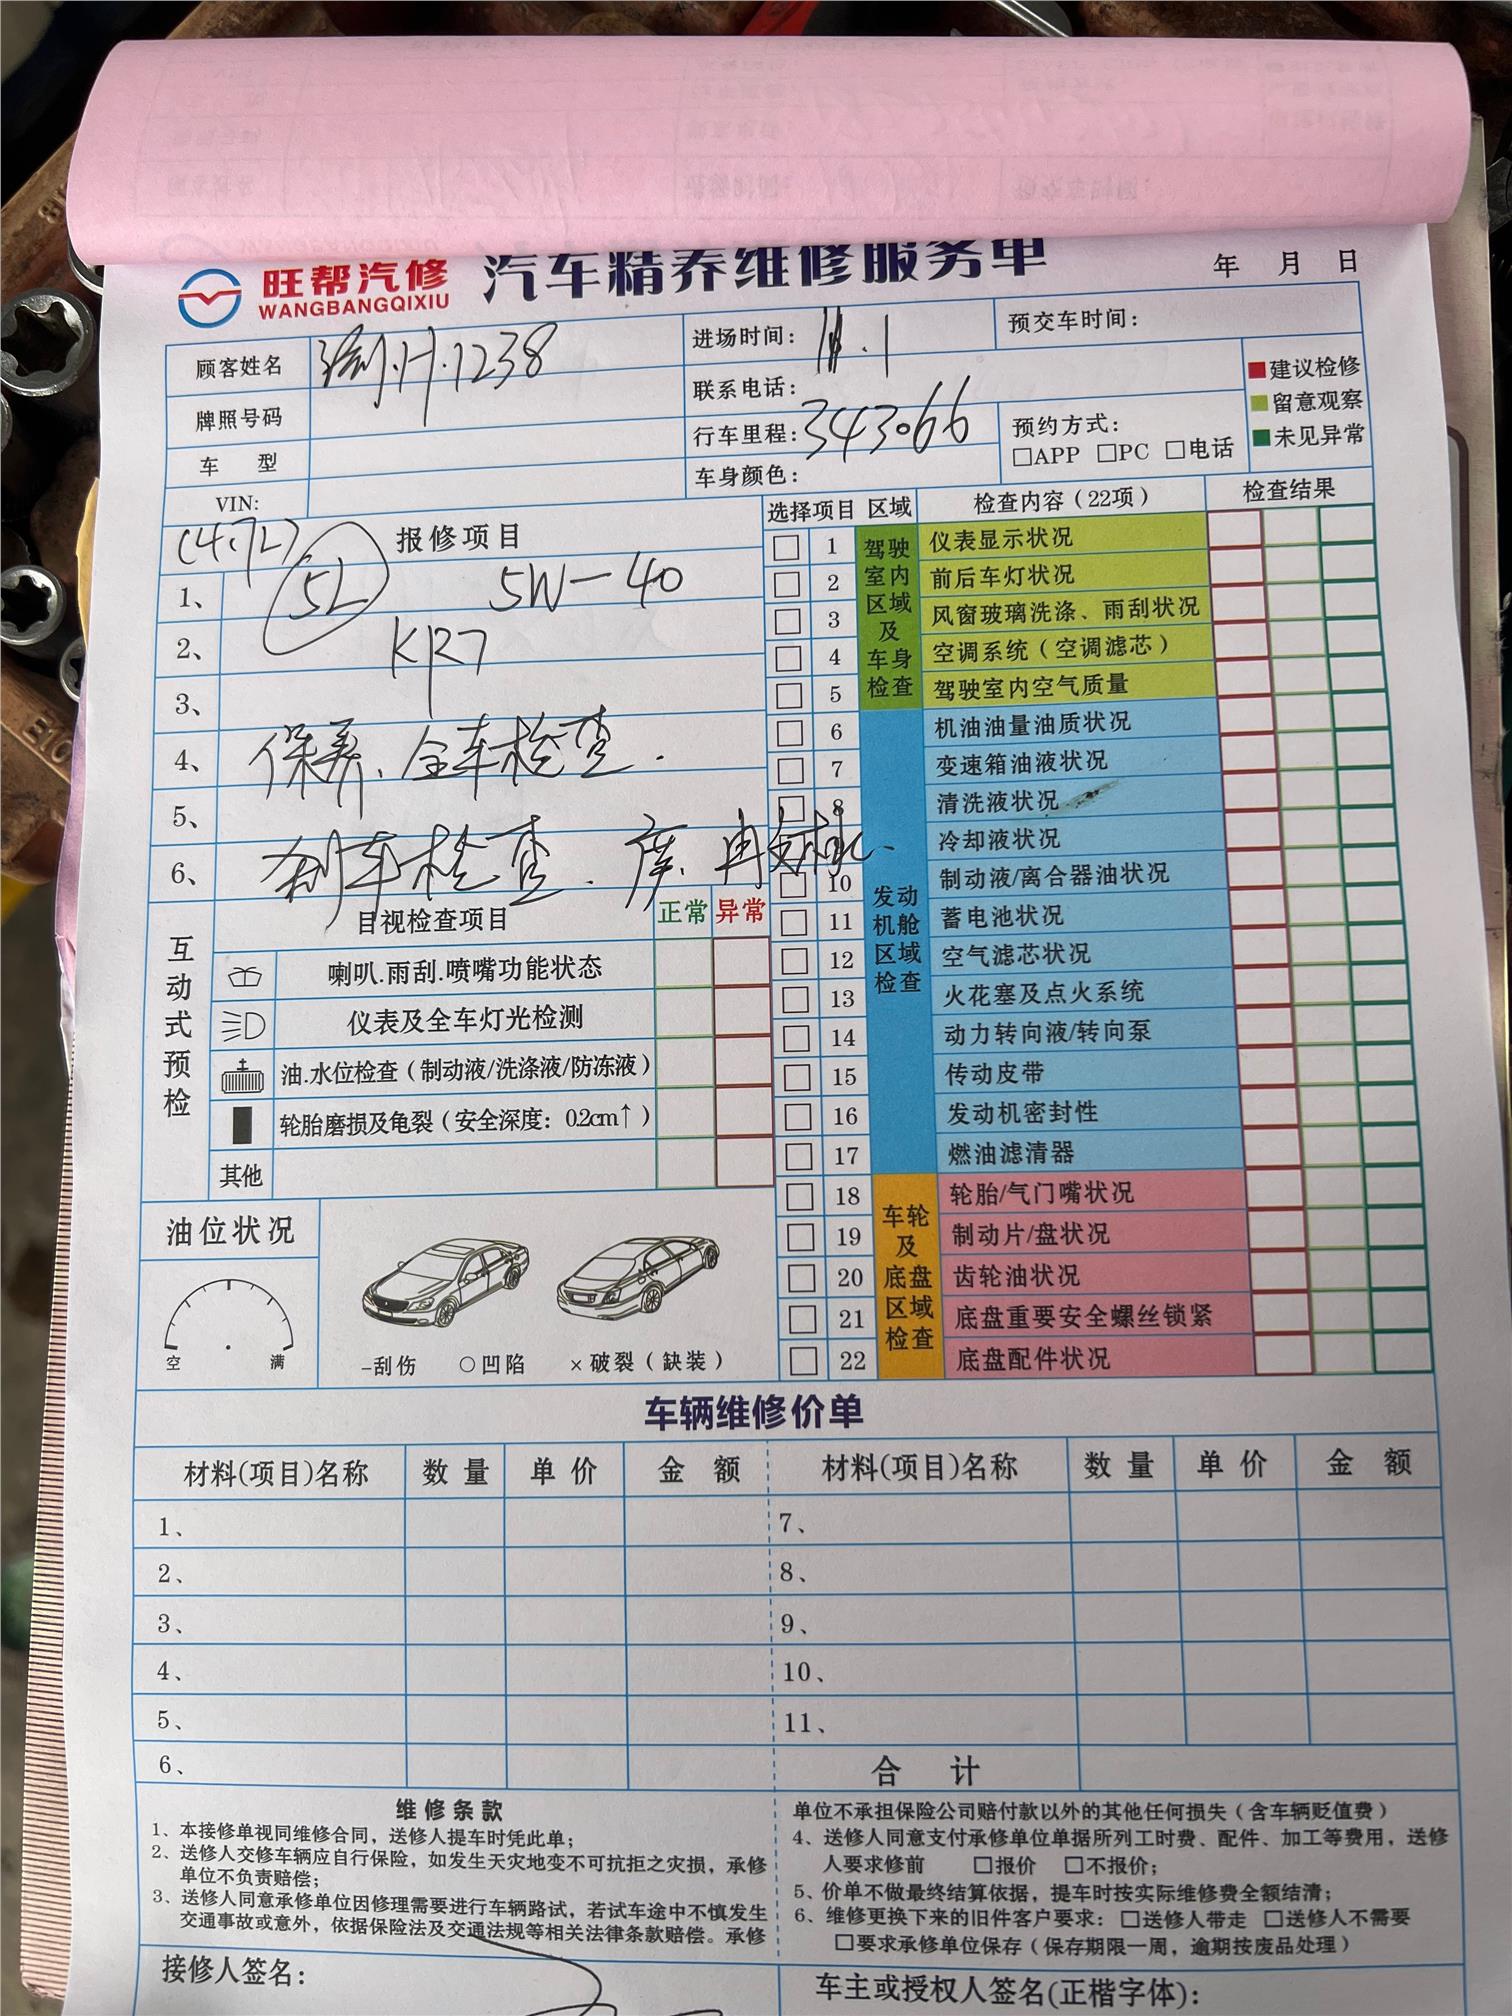 旺帮汽修 汽车精养维修服务单 年 月 日
WANGBANGQIXIU
顾客姓名 .H.1238 进场时间: .1 预交车时间:
牌照号码 联系电话:
车 型 行车里程: 343066 预约方式:
□APP □PC □电话
VIN: 车身颜色:
建议检修
留意观察
未见异常
(4.7L) 报修项目
1、 5L 5W-40
2、 KR7
3、
4、 保养、全车检查.
5、
6、 刹车检查.
互动式预检 目视检查项目 正常 异常
喇叭.雨刮.喷嘴功能状态
仪表及全车灯光检测
油.水位检查(制动液/洗涤液/防冻液)
轮胎磨损及龟裂(安全深度: 0.2cm↑)
其他
油位状况
空 满
-刮伤 ○凹陷 ×破裂(缺装)
选择项目 区域 检查内容(22项) 检查结果
驾驶室内区域及车身检查
1 仪表显示状况
2 前后车灯状况
3 风窗玻璃洗涤、雨刮状况
4 空调系统(空调滤芯)
5 驾驶室内空气质量
发动机舱区域检查
6 机油油量油质状况
7 变速箱油液状况
8 清洗液状况
冷却液状况
10 制动液/离合器油状况
11 蓄电池状况
12 空气滤芯状况
13 火花塞及点火系统
14 动力转向液/转向泵
15 传动皮带
16 发动机密封性
17 燃油滤清器
车轮及底盘区域检查
18 轮胎/气门嘴状况
19 制动片/盘状况
20 齿轮油状况
21 底盘重要安全螺丝锁紧
22 底盘配件状况
车辆维修价单
材料(项目)名称 数量 单价 金额 材料(项目)名称 数量 单价 金额
1、 7、
2、 8、
3、 9、
4、 10、
5、 11、
6、 合 计
维修条款
1、本接修单视同维修合同，送修人提车时凭此单；
2、送修人交修车辆应自行保险，如发生天灾地变不可抗拒之灾损，承修
单位不负责赔偿；
3、送修人同意承修单位因修理需要进行车辆路试，若试车途中不慎发生
交通事故或意外，依据保险法及交通法规等相关法律条款赔偿。承修
单位不承担保险公司赔付款以外的其他任何损失(含车辆贬值费)
4、送修人同意支付承修单位单据所列工时费、配件、加工等费用，送修
人要求修前 □报价 □不报价；
5、价单不做最终结算依据，提车时按实际维修费全额结清；
6、维修更换下来的旧件客户要求: □送修人带走 □送修人不需要
□要求承修单位保存(保存期限一周，逾期按废品处理)
接修人签名: 车主或授权人签名(正楷字体):